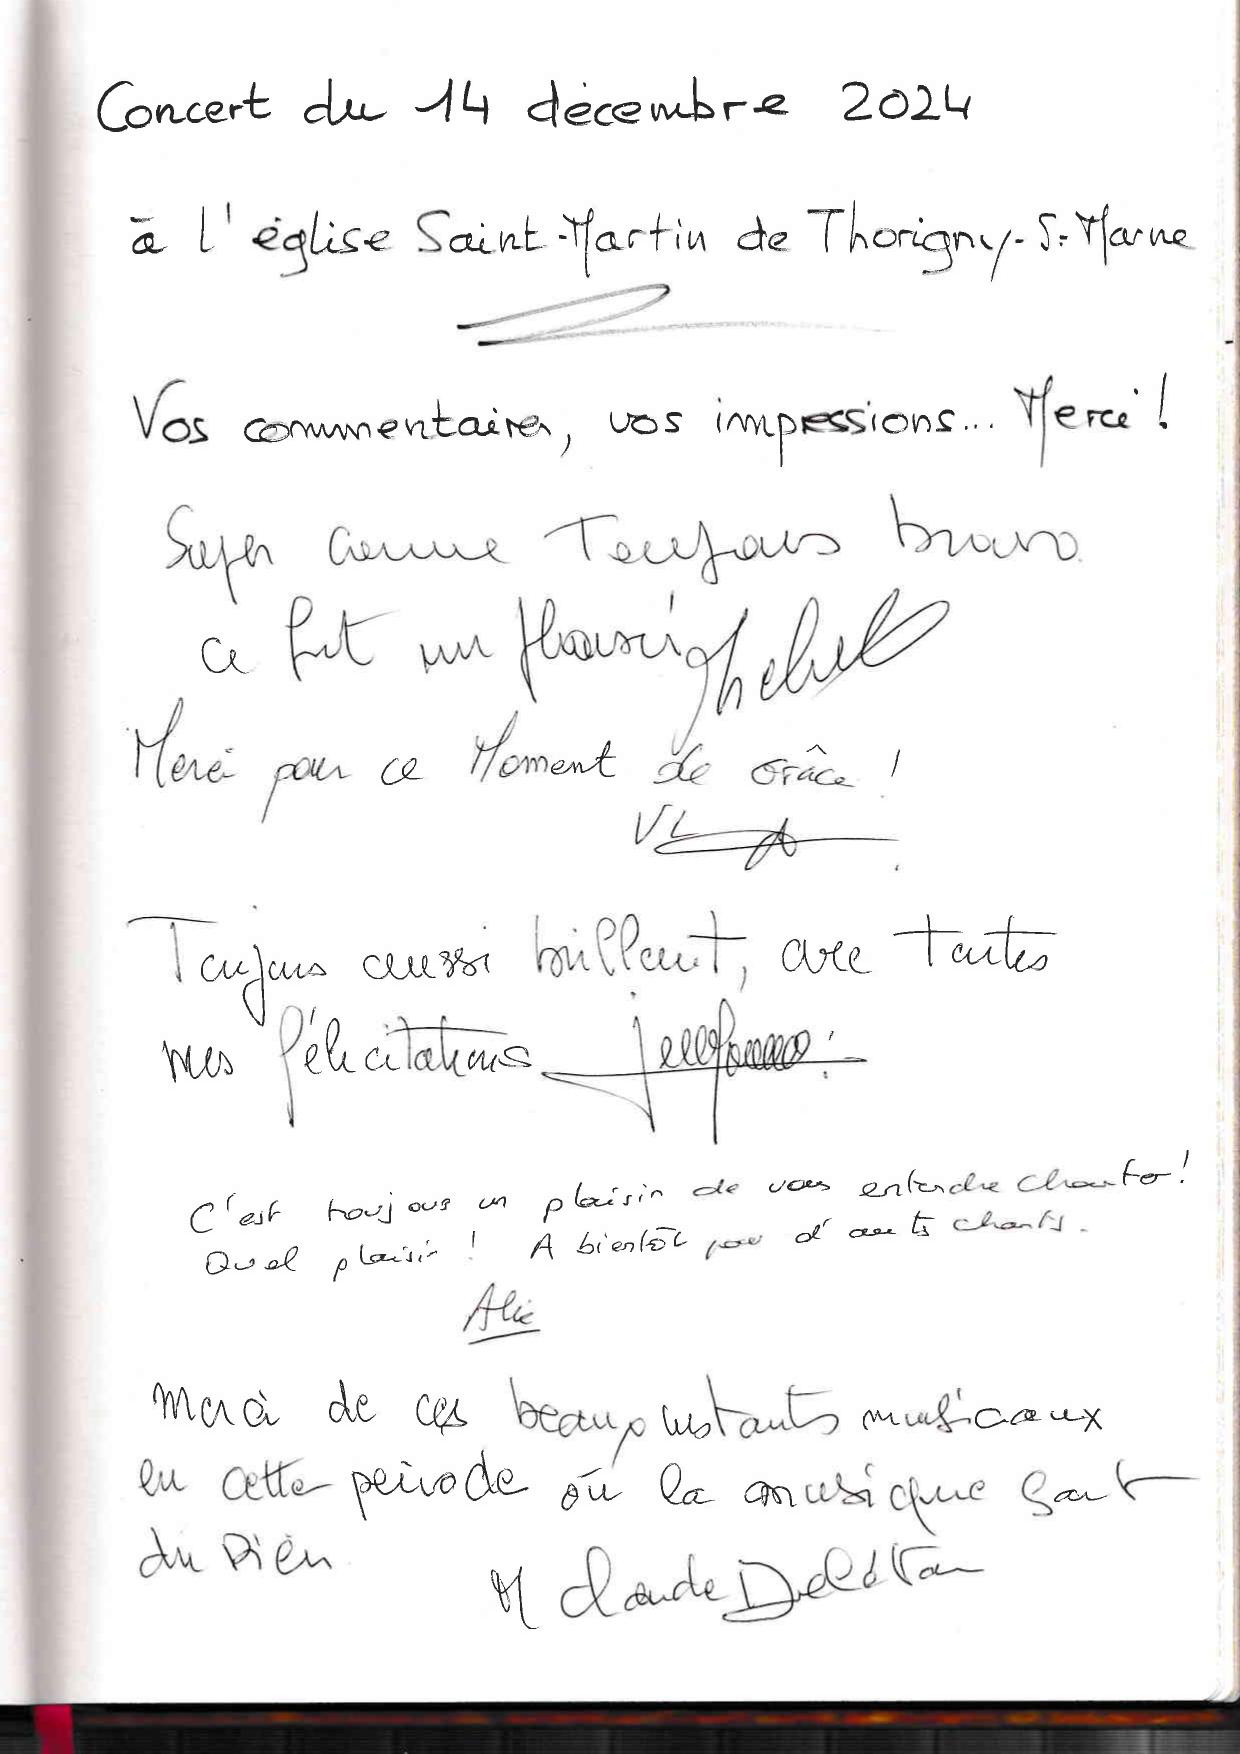 Concert du 14 décembre 2024
à l'église Saint-Martin de Thorigny-S-Marne
Vos commentaires, vos impressions... Merci !
Super comme Toujours bravo
ce fut un plaisir
Merci pour ce Moment de Grâce !
VL
Toujours aussi brillant, avec toutes
mes félicitations
C'est toujours un plaisir de vous entendre chanter !
Quel plaisir ! A bientôt pour d'autres chants.
Alice
Merci de ces beaux instants musicaux
en cette période où la musique fait
du bien
M Claude